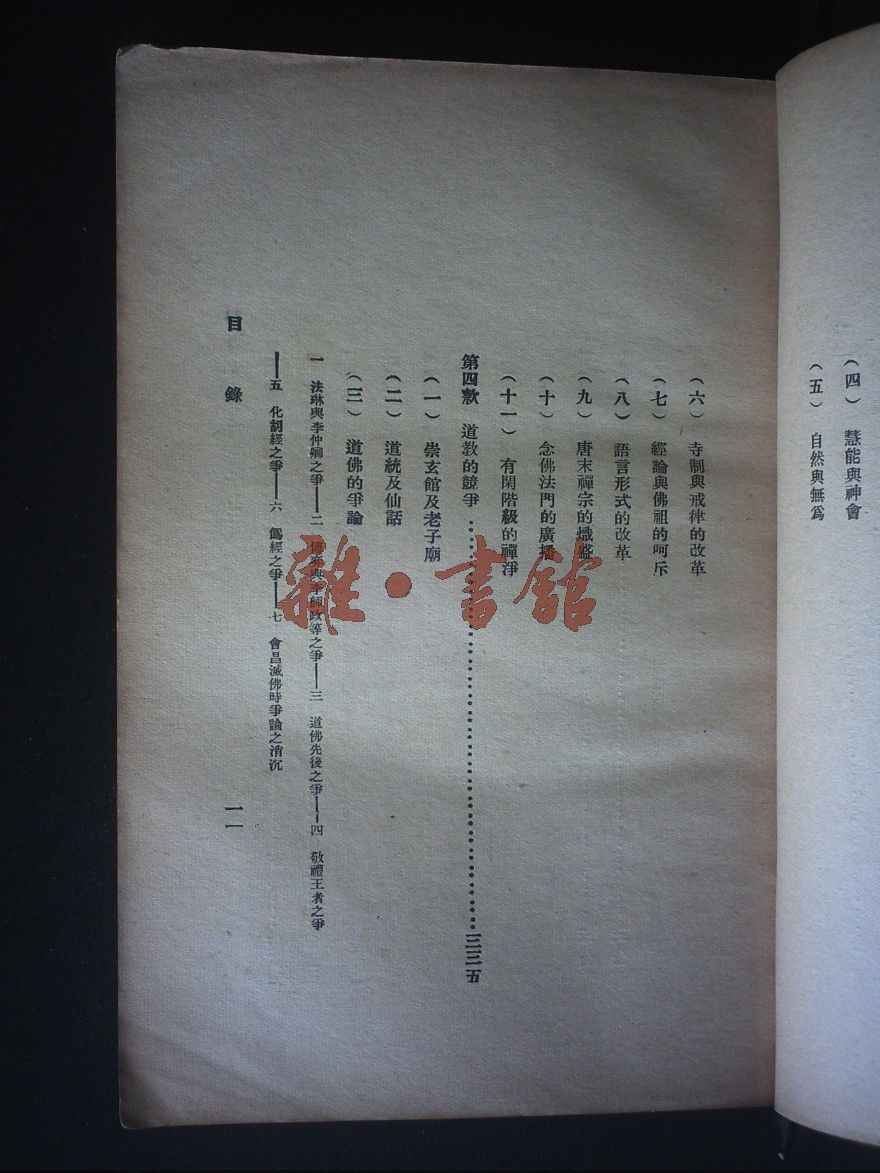 （四） 慧能與神會
（五） 自然與無爲
（六） 寺制與戒律的改革
（七） 經論與佛祖的呵斥
（八） 語言形式的改革
（九） 唐末禪宗的熾盛
（十） 念佛法門的廣播
（十一） 有閑階級的禪淨
第四款 道教的競爭……三三五
（一） 崇玄館及老子廟
（二） 道統及仙話
（三） 道佛的爭論
一 法琳與李仲卿之爭——二 傅奕與李師政等之爭——三 道佛先後之爭——四 敬禮王者之爭
——五 化胡經之爭——六 僞經之爭——七 會昌滅佛時爭論之消沉
目錄 一一
雜·書館